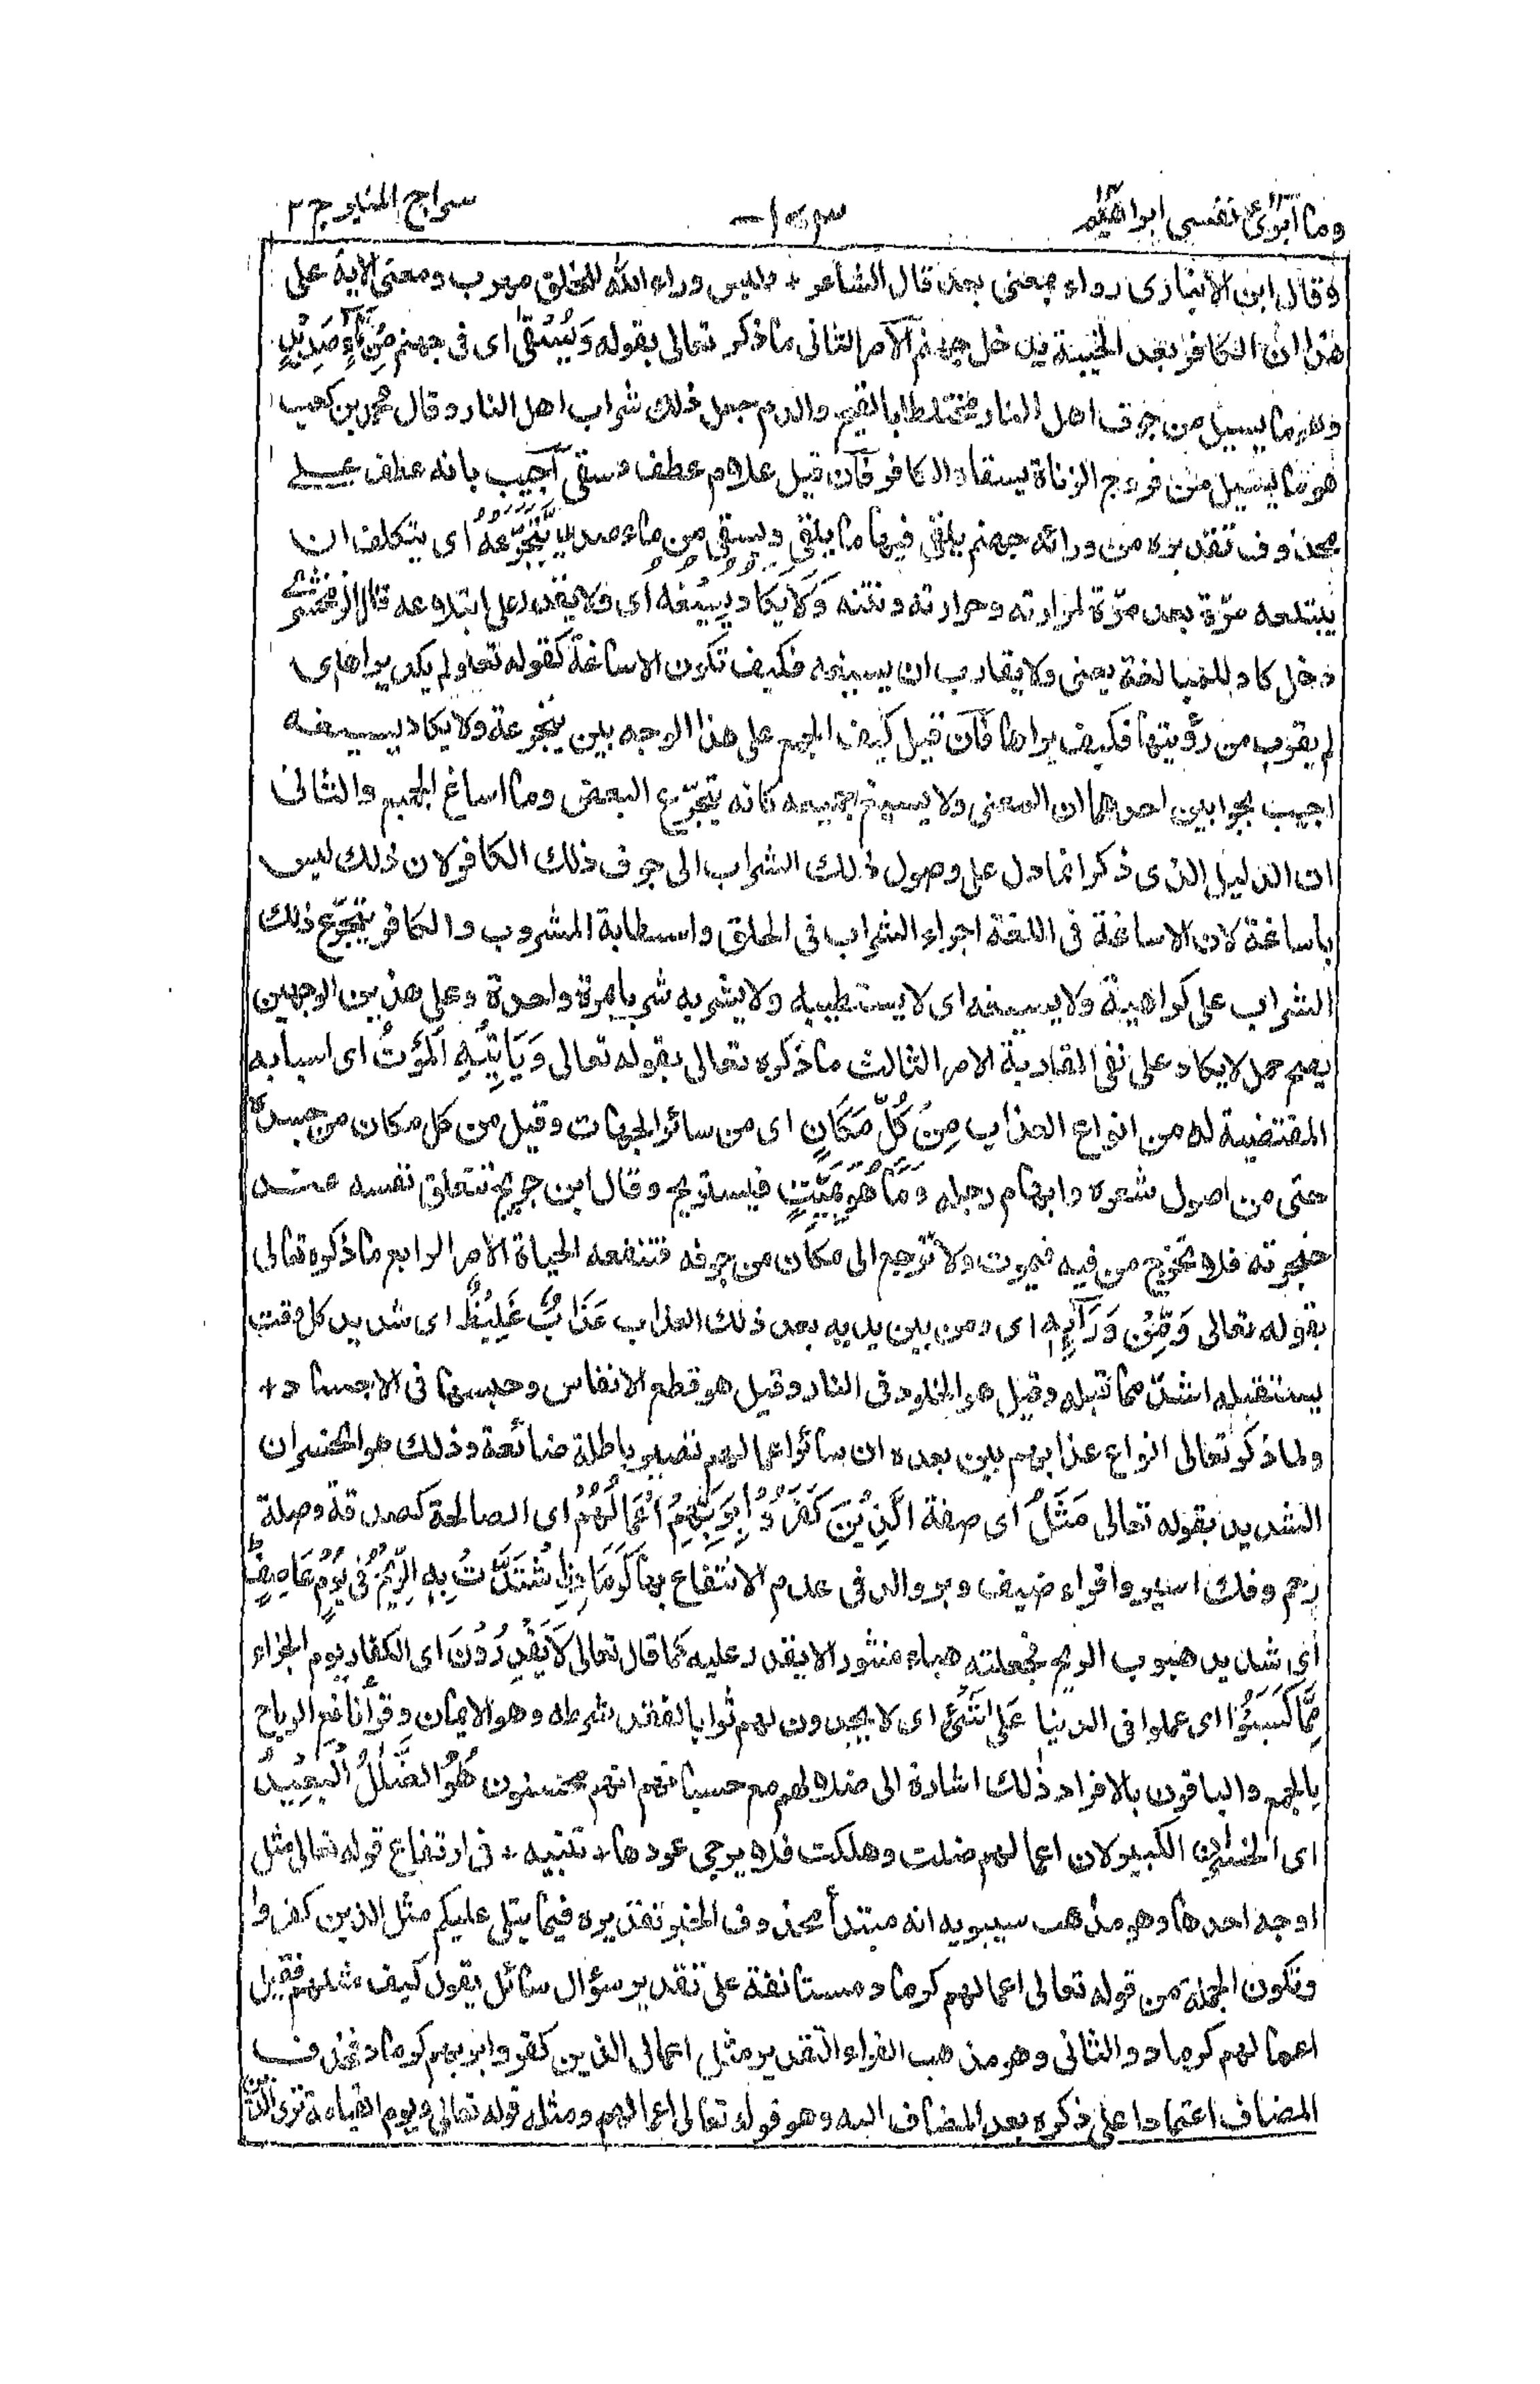 وما أبرئ نفسي ابراهيم
١٤٣
سراج المنير ج ٢
وقال ابن الانبارى وراء بمعنى بعد قال الشاعر + وليس وراء الله للخلق مهرب ومعنى الاية على
هذا ان الكافر بعد الخيبة يدخل جهنم الامر الثانى ما ذكر تعالى بقوله وَيُسْقٰى اى فى جهنم مِنْ مَّآءٍ صَدِيْدٍ
وهو ما يسيل من جوف اهل النار مختلطا بالقيح والدم جعل ذلك شراب اهل النار وقال محمد بن كعب
هو ما يسيل من فروج الزناة يسقاه الكافر فان قيل علام عطف ويسقى اجيب بانه عطف على
محذوف تقديره من ورائه جهنم يلقى فيها ما يلقى ويسقى من ماء صديد يَّتَجَرَّعُهٗ اى يتكلف ان
يبتلعه مرّة بعد مرّة لمرارته وحرارته ونتنه وَلَا يَكَادُ يُسِيْغُهٗ اى ولا يقدر على ابتلاعه قال الزمخشرى
دخل كاد للمبالغة يعنى ولا يقارب ان يسيغه فكيف تكون الاساغة كقوله تعالى لم يكد يراها اى
لم يقرب من رؤيتها فكيف يراها فان قيل كيف الجمع على هذا الوجه بين يتجرعه ولا يكاد يسيغه
اجيب بجوابين احدهما ان المعنى ولا يسيغ جميعه كانه يتجرّع البعض وما اساغ الجميع والثانى
ان الدليل الذى ذكر انما دل على وصول ذلك الشراب الى جوف ذلك الكافر لان ذلك ليس
باساغة لان الاساغة فى اللغة اجراء الشراب فى الحلق واستطابة المشروب والكافر يتجرّع ذلك
الشراب على كراهية ولا يسيغه اى لا يستطيبه ولا يشربه شربا بمرة واحدة وعلى هذين الوجهين
يصح حمل لا يكاد على نفى المقاربة الامر الثالث ما ذكره تعالى بقوله تعالى وَيَاْتِيْهِ الْمَوْتُ اى اسبابه
المقتضية له من انواع العذاب مِنْ كُلِّ مَكَانٍ اى من سائر الجهات وقيل من كل مكان من جسده
حتى من اصول شعره وابهام رجله وَّمَا هُوَ بِمَيِّتٍ فيستريح وقال ابن جريج تتعلق نفسه عند
حنجرته فلا تخرج من فيه فيموت ولا ترجع الى مكان من جوفه فتنفعه الحياة الامر الرابع ما ذكره تعالى
بقوله تعالى وَمِنْ وَّرَآئِهٖ اى ومن بين يديه بعد ذلك العذاب عَذَابٌ غَلِيْظٌ اى شديد كل وقت
يستقبله اشدّ مما قبله وقيل هو الخلود فى النار وقيل هو قطع الانفاس وحبسها فى الاجساد +
ولما ذكر تعالى انواع عذابهم بين بعده ان سائر اعمالهم تصير باطلة ضائعة وذلك هو الخسران
الشديد بقوله تعالى مَثَلُ اى صفة الَّذِيْنَ كَفَرُوْا بِرَبِّهِمْ اَعْمَالُهُمْ اى الصالحة كصدقة وصلة
رحم وفك اسير واقراء ضيف وبر والد فى عدم الانتفاع بها كَرَمَادِ نِ اشْتَدَّتْ بِهِ الرِّيْحُ فِىْ يَوْمٍ عَاصِفٍ
اى شديد هبوب الريح فجعلته هباء منثورا لا يقدر عليه كما قال تعالى لَا يَقْدِرُوْنَ اى الكفار يوم الجزاء
مِمَّا كَسَبُوْا اى عملوا فى الدنيا عَلٰى شَىْءٍ اى لا يجدون لهم ثوابا لفقد شرطه وهو الايمان وقرأ نافع الرياح
بالجمع والباقون بالافراد ذٰلك اشارة الى ضلالهم مع حسبانهم انهم محسنون هُوَ الضَّلٰلُ الْبَعِيْدُ
اى الخسران الكبير لان اعمالهم ضلت وهلكت فلا يرجى عودها + تنبيه + فى ارتفاع قوله تعالى مثل
اوجه احدها وهو مذهب سيبويه انه مبتدأ محذوف الخبر تقديره فيما يتلى عليكم مثل الذين كفروا
وتكون الجملة من قوله تعالى اعمالهم كرماد مستانفة على تقدير سؤال سائل يقول كيف مثلهم فقيل
اعمالهم كرماد والثانى وهو مذهب الفراء التقدير مثل اعمال الذين كفروا بربهم كرماد فحذف
المضاف اعتمادا على ذكره بعد المضاف اليه وهو قوله تعالى اعمالهم ومثله قوله تعالى ويوم القيامة ترى الذين